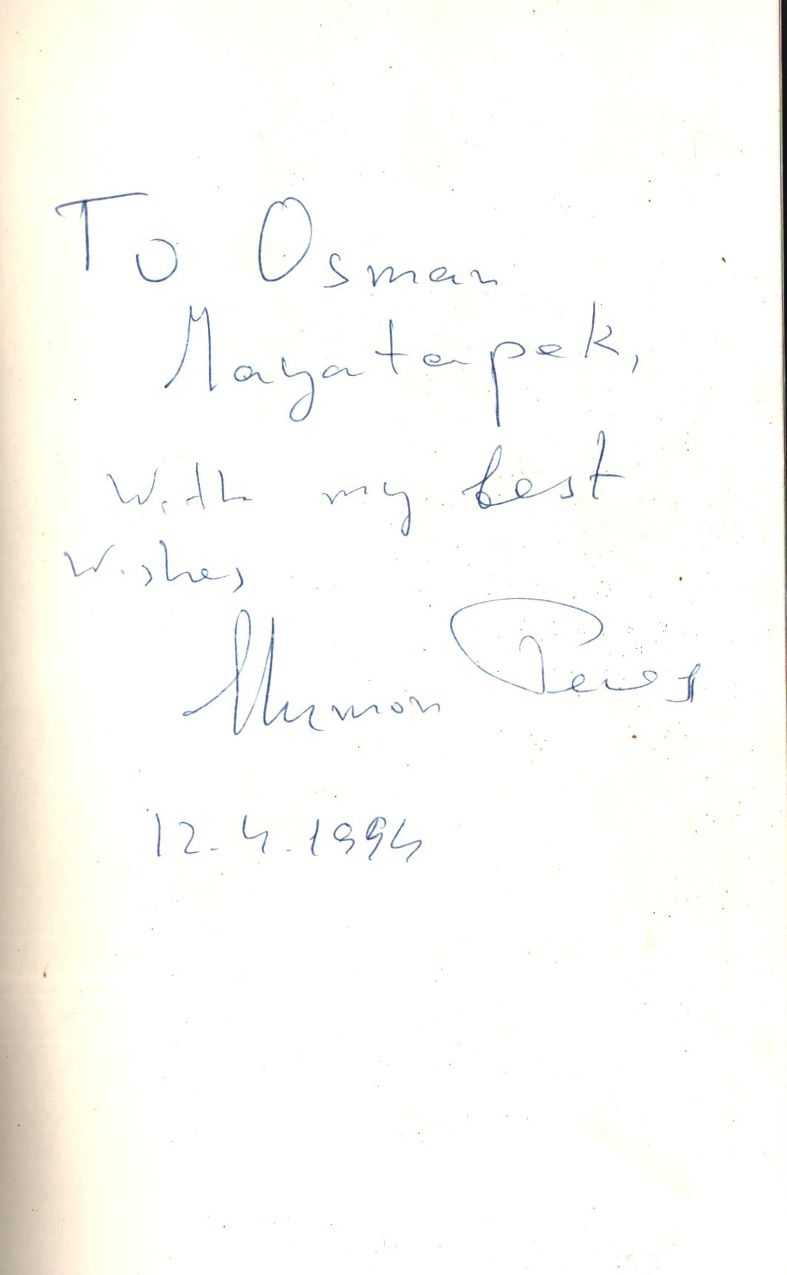 To Osman
Mayatepek,
With my best
Wishes
Shimon Peres
12.4.1994